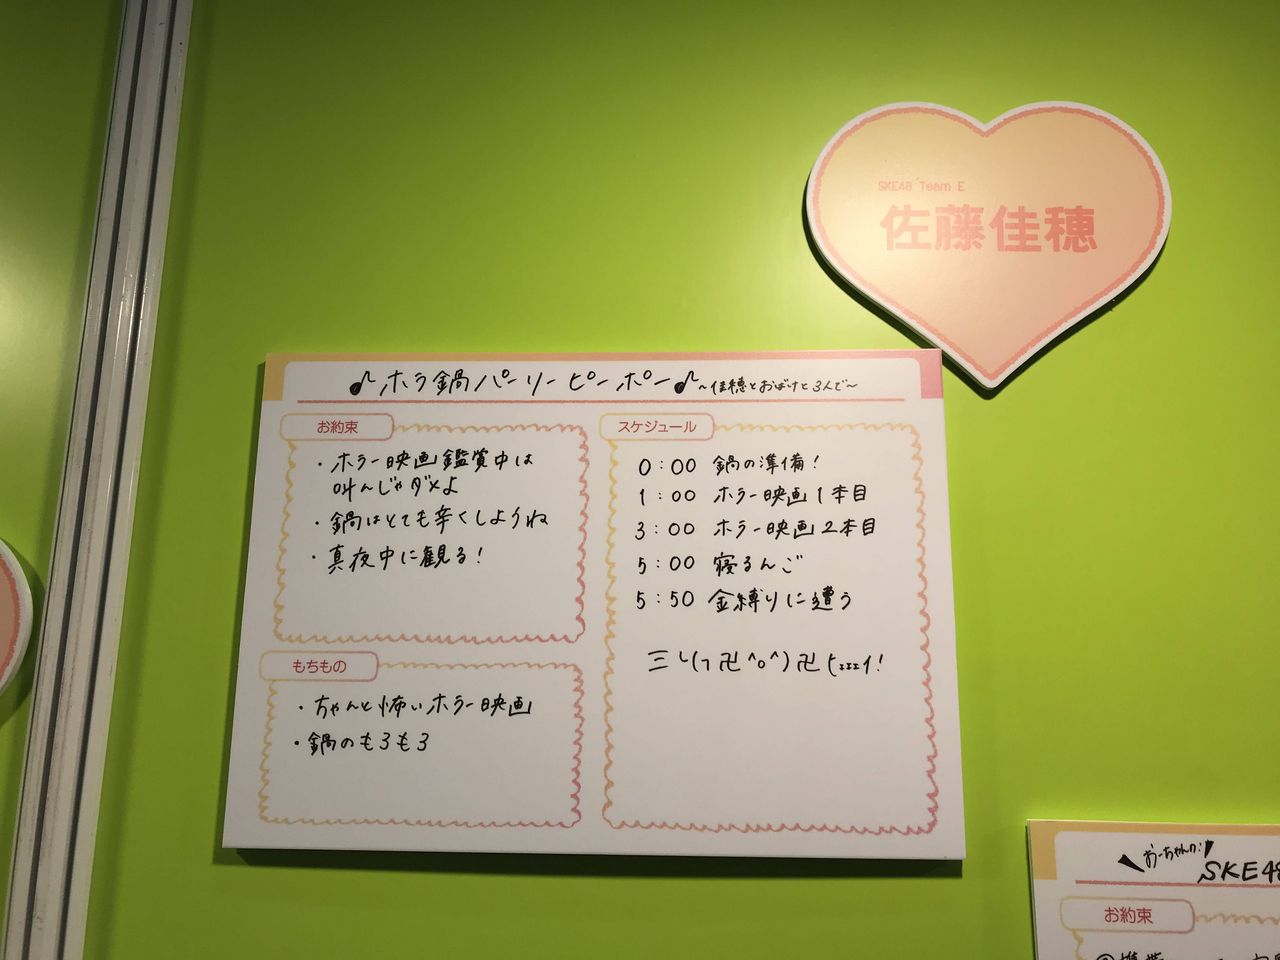 SKE48 Team E
佐藤佳穂
♪ホラ鍋パーリーピーポー♪~佳穂とおばけと3人で~
お約束
・ホラー映画鑑賞中は
叫んじゃダメよ
・鍋はとても辛くしようね
・真夜中に観る!
もちもの
・ちゃんと怖いホラー映画
・鍋のもろもろ
スケジュール
0:00 鍋の準備!
1:00 ホラー映画1本目
3:00 ホラー映画2本目
5:00 寝るんご
5:50 金縛りに遭う
おーちゃんの!
SKE48
お約束